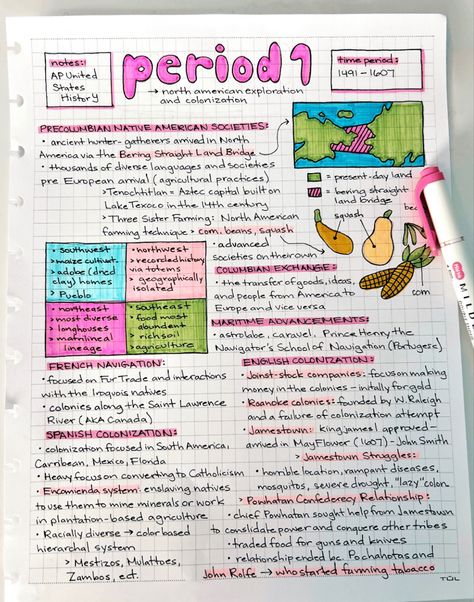 notes:
AP United
States
History
period 1
→ north american exploration
and colonization
time period:
1491-1607
PRECOLUMBIAN NATIVE AMERICAN SOCIETIES:
• ancient hunter-gatherers arrived in North
America via the Bering Straight Land Bridge
• thousands of diverse languages and societies
pre European arrival (agricultural practices)
> Tenochtitlan = Aztec capital built on
Lake Texoco in the 14th century
> Three Sister Farming: North American
farming technique > corn, beans, squash
• advanced
societies on their own
= present-day land
= bering straight
land bridge
squash
bec
corn
• southwest
> maize cultivat.
> adobe (dried
clay) homes
> Pueblo
• northwest
> recorded history
via totems
> geographically
isolated
• northeast
> most diverse
> longhouses
> matrilineal
lineage
• southeast
> food most
abundent
> rich soil
> agriculture
COLUMBIAN EXCHANGE:
• the transfer of goods, ideas,
and people from America to
Europe and vice versa
MARITIME ADVANCEMENTS:
• astrolabe, caravel, Prince Henry the
Navigator's School of Navigation (Portugese)
FRENCH NAVIGATION:
• focused on Fur Trade and interactions
with the Iroquois natives
• colonies along the Saint Lawrence
River (AKA Canada)
SPANISH COLONIZATION:
• colonization focused in South America,
Carribean, Mexico, Florida
• Heavy focus on converting to Catholicism
• Encamienda system: enslaving natives
to use them to mine minerals or work
in plantation-based agriculture
• Racially diverse → color based
hierarchal system
> Mestizos, Mulattoes,
Zambos, ect.
ENGLISH COLONIZATION:
• Joinst-stock companies: focus on making
money in the colonies - initally for gold
• Roanoke colonies: founded by W. Raleigh
and a failure of colonization attempt
• Jamestown: king james I approved-
arrived in MayFlower (1607) - John Smith
> Jamestown Struggles:
• horrible location, rampant diseases,
mosquitos, severe drought, "lazy" colon.
> Powhatan Confederecy Relationship:
• chief Powhatan sought help from Jamestown
to conslidate power and conquere other tribes
• traded food for guns and knives
• relationship ended bc. Pochahotas and
John Rolfe → who started farming tabacco
TUL